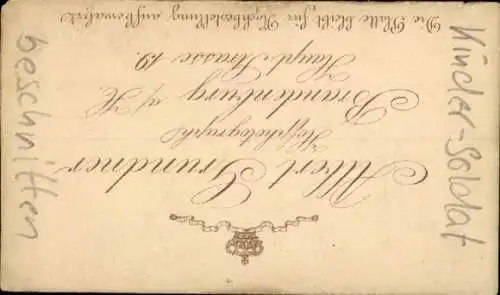 Albert Grundner
Hofphotograph
Brandenburg a/H.
Haupt Strasse 19.
Die Platte bleibt für Nachbestellung aufbewahrt
Kinder-Soldat
beschnitten